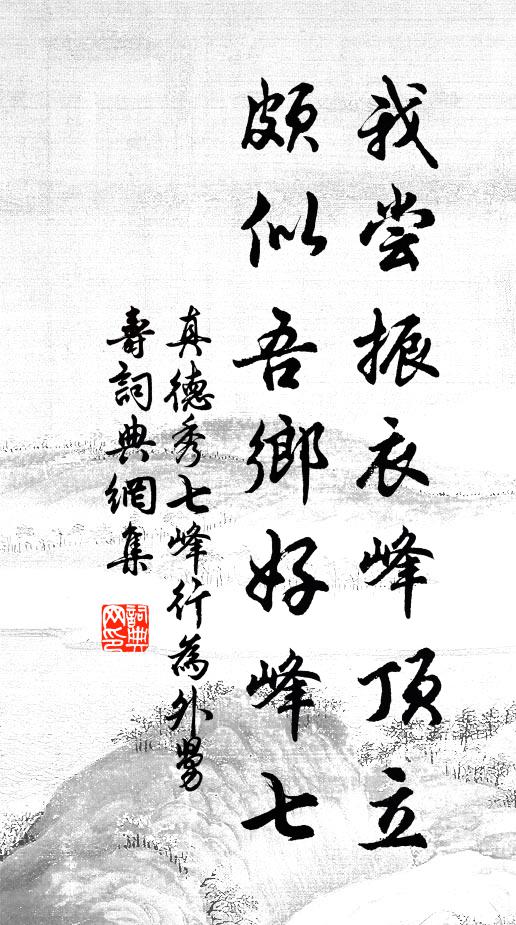 我尝振衣峰顶立
颇似吾鄉好峰七
真德秀七峰行為外舅
壽詞典網集
詞典网印